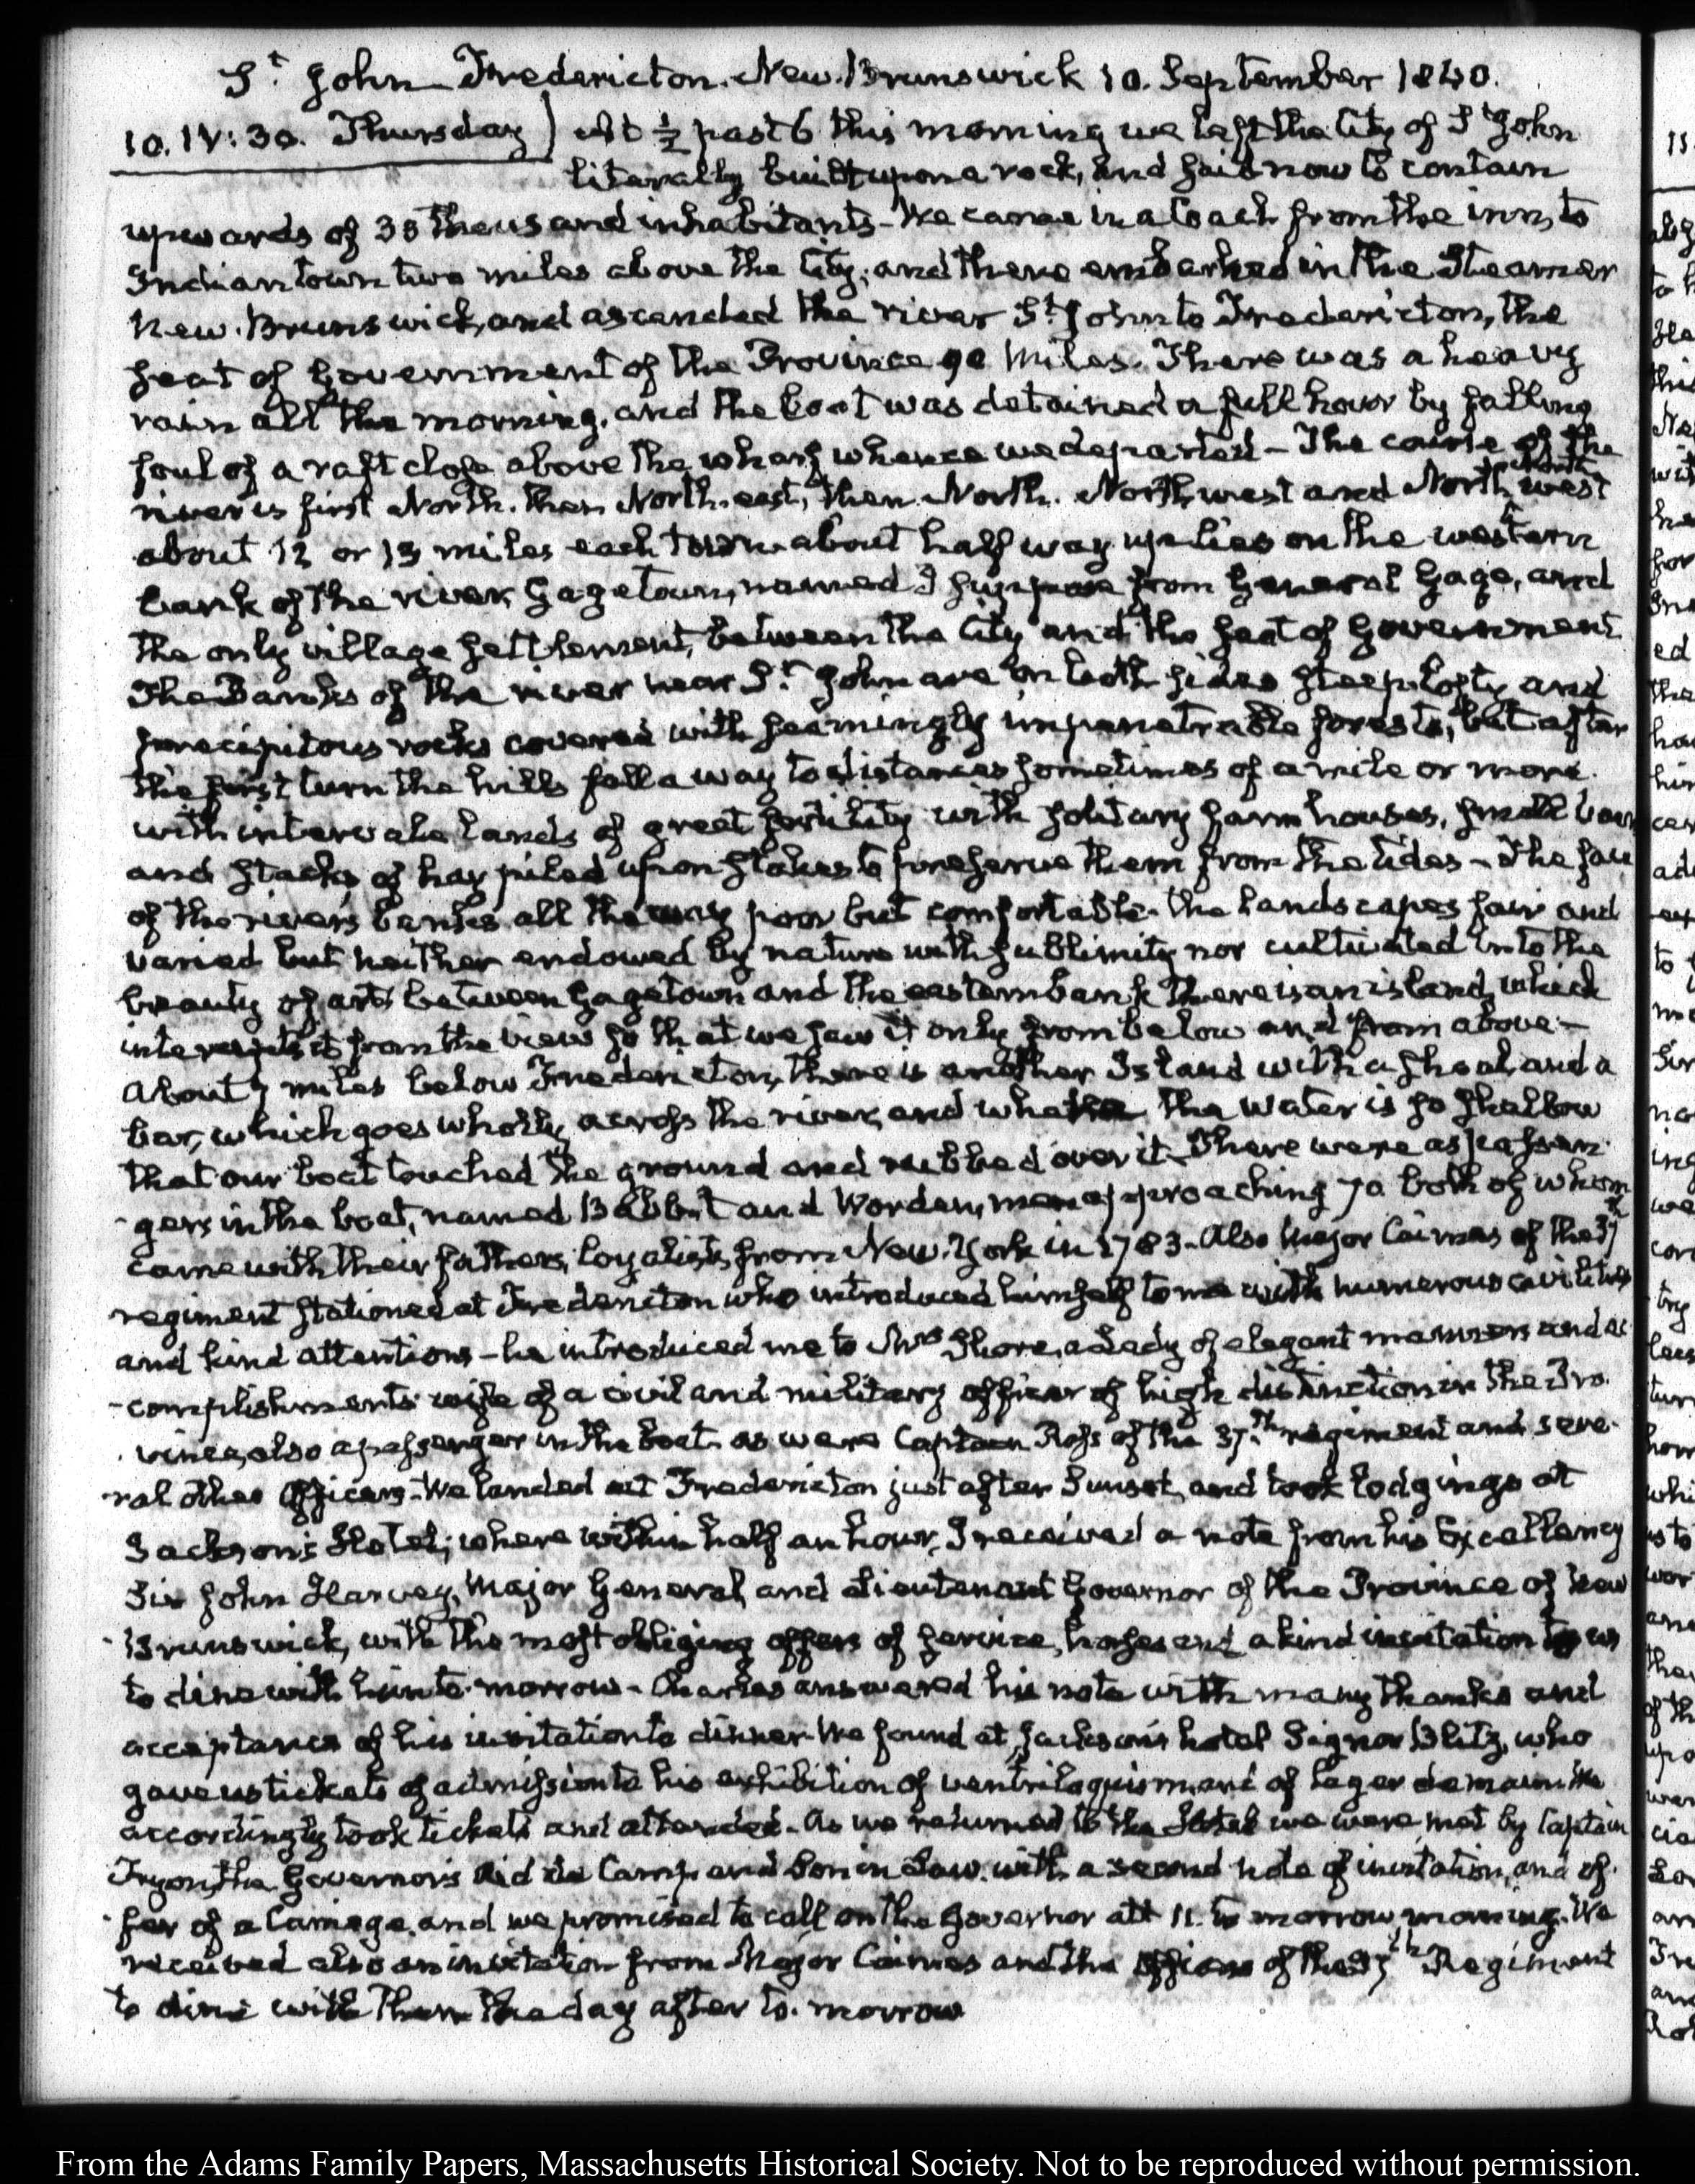 St. John—Fredericton. New-Brunswick 10. September 1840.
10. IV:30. Thursday) At ½ past 6 this morning we left the City of St John
literally built upon a rock, and said now to contain
upwards of 30 thousand inhabitants—We came in a Coach from the inn, to
Indian town two miles above the City, and there embarked in the Steamer
New-Brunswick, and ascended the river St. John to Fredericton, the
seat of Government of the Province 90 Miles. There was a heavy
rain all the morning, and the boat was detained a full hour by falling
foul of a raft close above the wharf whence we departed—The course of the
river is first North. then North-east, then North. North, west and North west
about 12 or 15 miles each turn about half way up lies on the western
bank of the river, Gagetown, named I suppose from General Gage, and
the only village settlement, between the City and the seat of Government.
The Banks of the river near St. John are on both sides steep, lofty and
precipitous rocks covered with seemingly impenetrable forests, but after
the first turn the hills fall away to distances sometimes of a mile or more.
with intervale lands of great fertility with solitary farm houses, small barns
and stacks of hay piled upon stakes to preserve them from the tides—The face
of the river's banks all the way poor but comfortable—the landscapes fair and
varied but neither endowed by nature with sublimity nor cultivated into the
beauty of art, between Gagetown and the eastern bank there is an island, which
intercepts it from the view so that we saw it only from below and from above—
About 7 miles below Fredericton, there is another Island with a shoal and a
bar, which goes wholly across the river, and the water is so shallow
that our boat touched the ground and rubbed over it—There were as passen-
-gers in the boat, named Babbit and Worden, men approaching 70 both of whom
came with their fathers, loyalists from New-York in 1783—Also Major Cairnes of the 37th
regiment stationed at Fredericton who introduced himself to me with numerous civilities
and kind attentions—he introduced me to Mrs Shore, a Lady of elegant manners and ac-
-complishments wife of a civil and military officer of high distinction in the Pro-
vince, also a passenger in the boat—as were Captain Ross of the 37.th regiment and seve-
-ral other Officers—We landed at Fredericton just after Sunset, and took lodgings at
Jackson's Hotel; where within half an hour, I received a note from his Excellency
Sir John Harvey, Major General, and Lieutenant Governor of the Province of New
-Brunswick, with the most obliging offers of service, horses and a kind invitation to us
to dine with him to-morrow—Charles answered his note with many thanks and
acceptance of his invitation to dinner—We found at Jackson's hotel Signor Blitz, who
gave us tickets of admission to his exhibition of ventriloquism, and of legerdemain. We
accordingly took tickets and attended—As we returned to the Hotel we were met by Captain
Tryon, the Governor's Aid de Camp and Son in Law, with a second note of invitation, and of-
-fer of a Carriage, and we promised to call on the Governor at 11. to morrow morning. We
received also an invitation from Major Cairnes and the Officers of the 37th Regiment
to dine with them the day after to-morrow
From the Adams Family Papers, Massachusetts Historical Society. Not to be reproduced without permission.